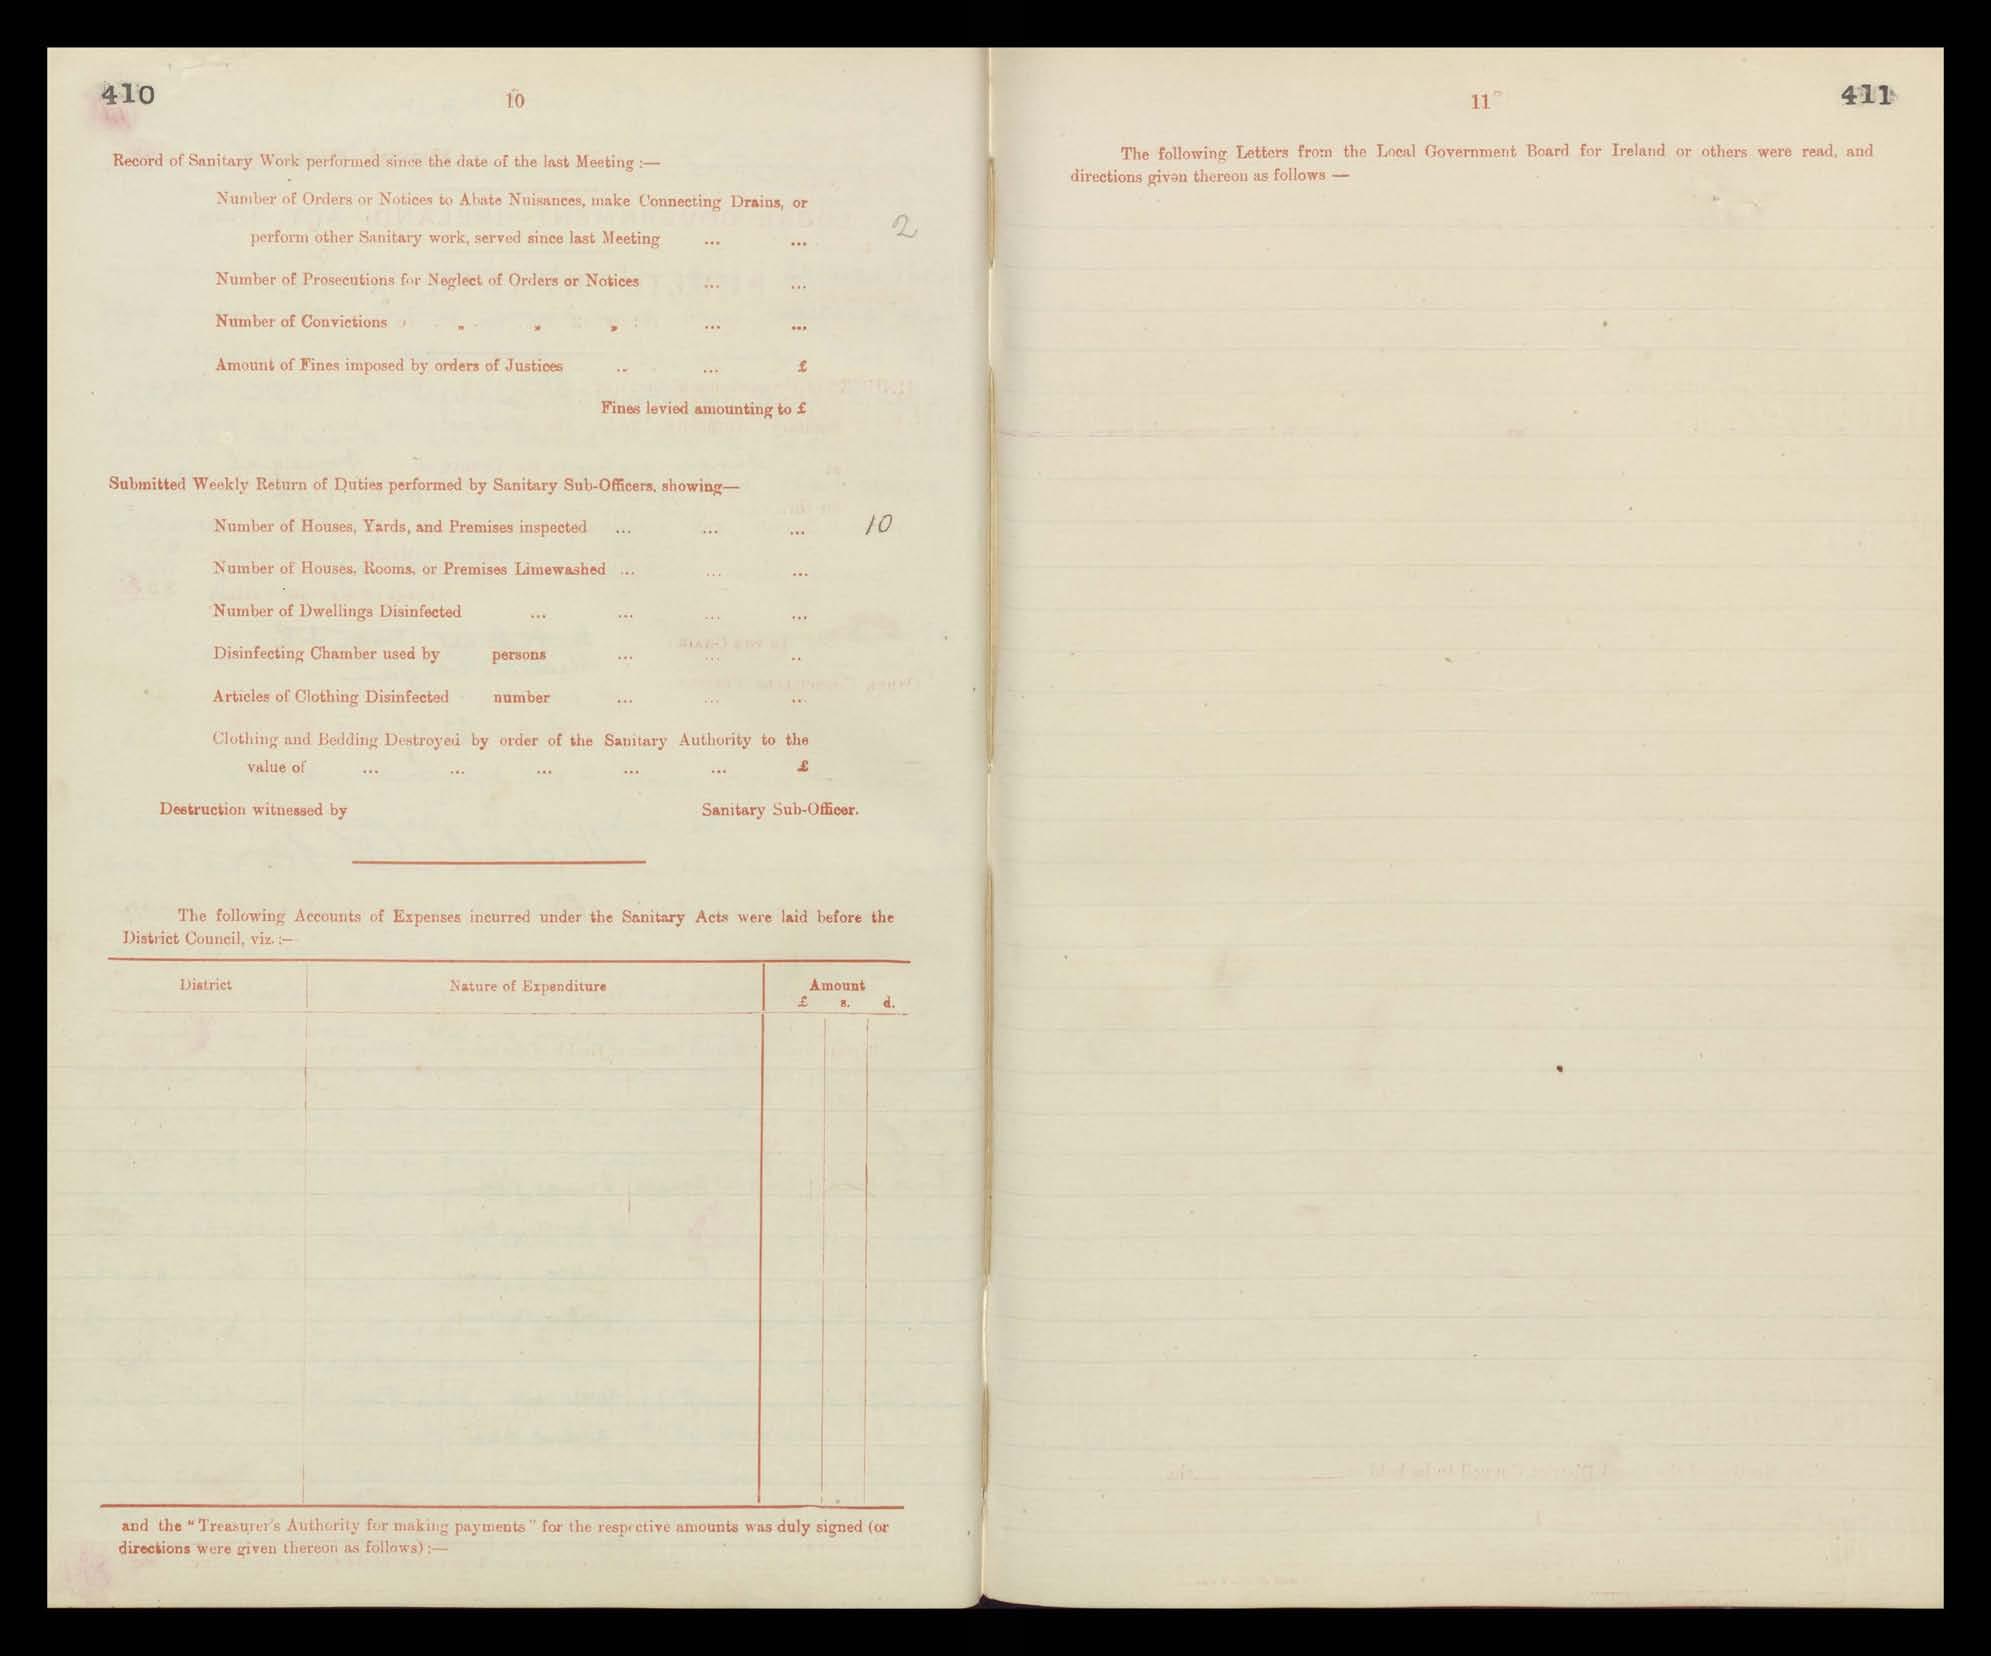 410
10
Record of Sanitary Work performed since the date of the last Meeting :—
Number of Orders or Notices to Abate Nuisances, make Connecting Drains, or
perform other Sanitary work, served since last Meeting ... ... 2
Number of Prosecutions for Neglect of Orders or Notices ... ...
Number of Convictions " " " ... ...
Amount of Fines imposed by orders of Justices .. ... £
Fines levied amounting to £
Submitted Weekly Return of Duties performed by Sanitary Sub-Officers, showing—
Number of Houses, Yards, and Premises inspected ... ... ... 10
Number of Houses, Rooms, or Premises Limewashed ... ... ...
Number of Dwellings Disinfected ... ... ... ...
Disinfecting Chamber used by persons ... ... ..
Articles of Clothing Disinfected number ... ... ...
Clothing and Bedding Destroyed by order of the Sanitary Authority to the
value of ... ... ... ... ... £
Destruction witnessed by Sanitary Sub-Officer.
The following Accounts of Expenses incurred under the Sanitary Acts were laid before the
District Council, viz. :—
District Nature of Expenditure Amount
£ s. d.
and the "Treasurer's Authority for making payments" for the respective amounts was duly signed (or
directions were given thereon as follows) :—
11
411
The following Letters from the Local Government Board for Ireland or others were read, and
directions given thereon as follows —